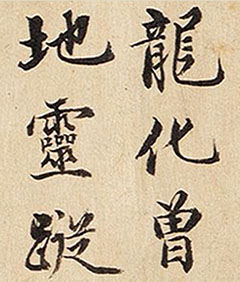 龍化曾
地靈蹤